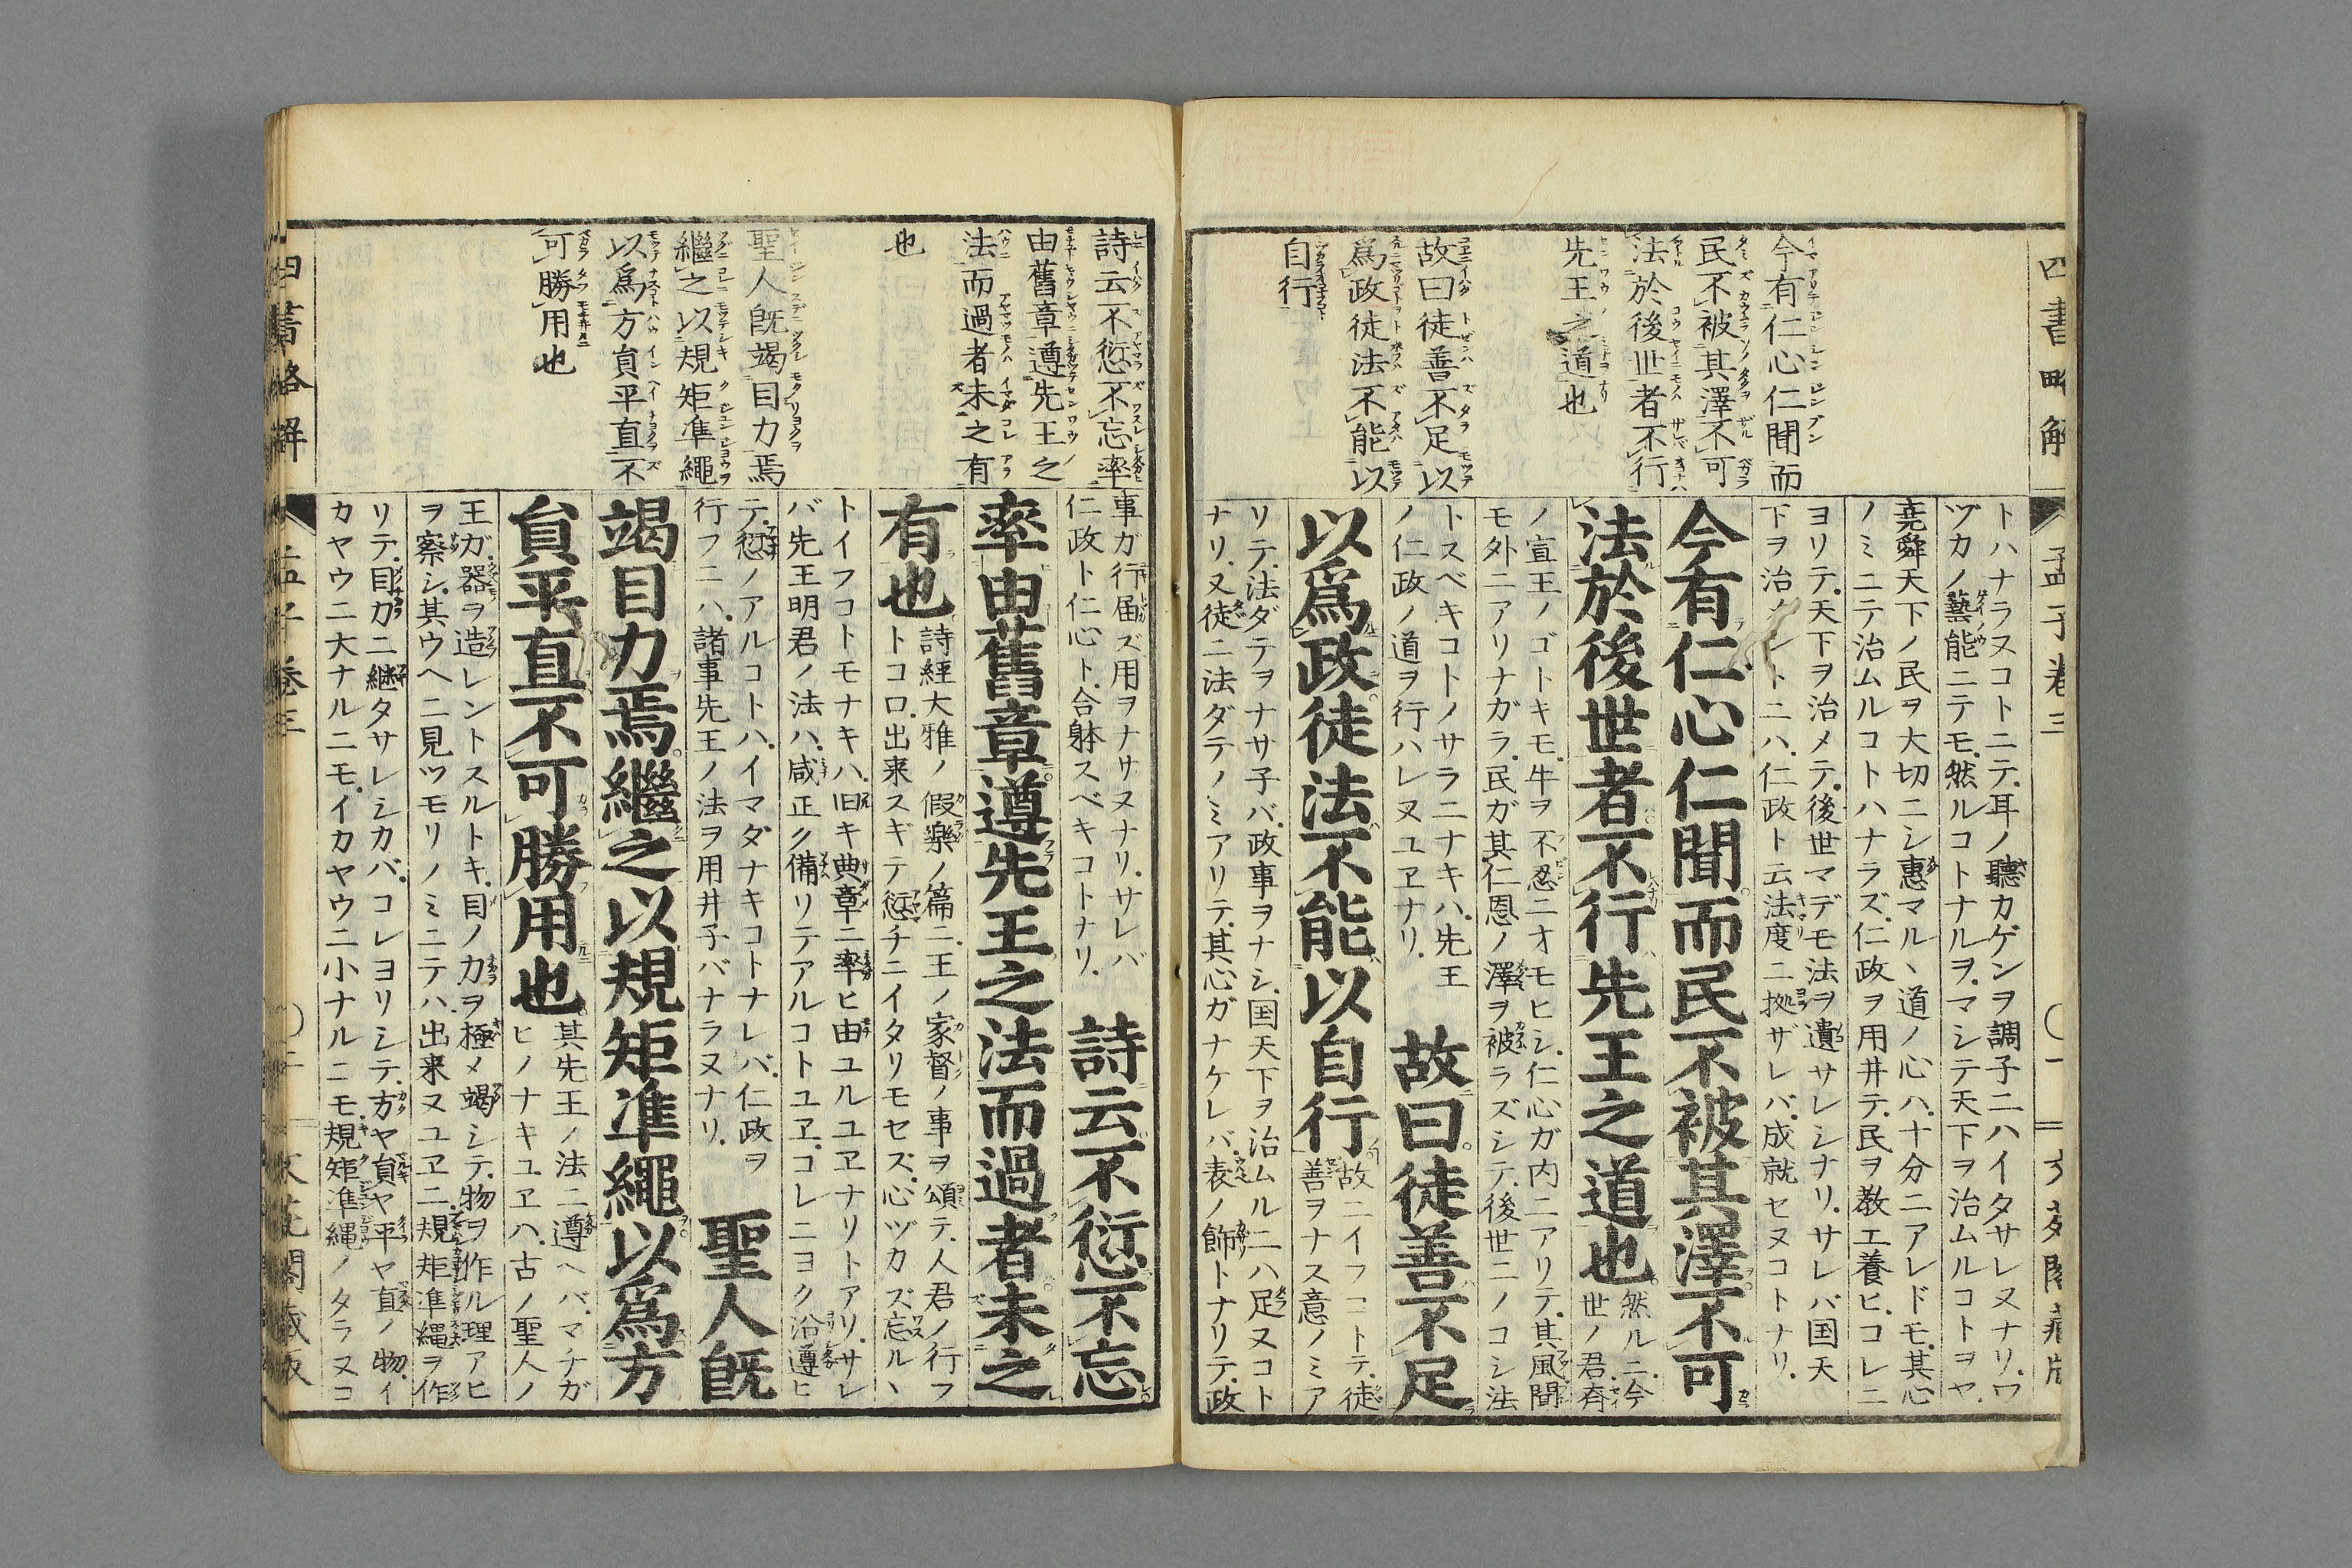 四書略解
孟子卷三
今有仁心仁聞而
民不被其澤不可
法於後世者不行
先王之道也
故曰徒善不足以
爲政徒法不能以
自行
トハナラヌコトニテ耳ノ聽カゲンヲ調子ニハイタサレヌナリ.ワ
ヅカノ藝能ニテモ.然ルコトナルヲ.マシテ天下ヲ治ムルコトヲヤ.
堯舜天下ノ民ヲ大切ニシ惠マルヽ道ノ心ハ.十分ニアレドモ.其心
ノミニテ治ムルコトハナラズ.仁政ヲ用井テ.民ヲ教エ養ヒ.コレニ
ヨリテ.天下ヲ治メテ.後世マデモ法ヲ遺サレシナリ.サレバ国天
下ヲ治メントニハ.仁政ト云法度ニ拠ザレバ.成就セヌコトナリ.
今有仁心仁聞而民不被其澤不可
法於後世者不行先王之道也
然ルニ.今
世ノ君.斉
ノ宣王ノゴトキモ.牛ヲ不忍ニオモヒシ.仁心ガ内ニアリテ.其風聞
モ外ニアリナガラ.民ガ其仁恩ノ澤ヲ被ラズシテ.後世ニノコシ法
トスベキコトノサラニナキハ.先王
ノ仁政ノ道ヲ行ハレヌユエナリ.
故曰徒善不足
以爲政徒法不能以自行
故ニイフコトテ.徒
善ヲナス意ノミア
リテ.法ダテヲナサ子バ.政事ヲナシ.国天下ヲ治ムルニハ足ヌコト
ナリ.又徒ニ法ダテノミアリテ.其心ガナケレバ.表ノ飾トナリテ.政
詩云不愆不忘率
由舊章遵先王之
法而過者未之有
也
聖人旣竭目力焉
繼之以規矩準繩
以爲方員平直不
可勝用也
事ガ行届ズ用ヲナサヌナリ.サレバ
仁政ト仁心ト.合躰スベキコトナリ.
詩云不愆不忘
率由舊章遵先王之法而過者未之
有也
詩經大雅ノ假樂ノ篇ニ.王ノ家督ノ事ヲ頌テ.人君ノ行フ
トコロ.出来スギテ愆チニイタリモセス.心ヅカズ忘ルヽ
トイフコトモナキハ.旧キ典章ニ率ヒ由ユルユエナリトアリ.サレ
バ先王明君ノ法ハ.咸正ク備リテアルコトユエ.コレニヨク沿遵ヒ
テ.愆ノアルコトハ.イマダナキコトナレバ.仁政ヲ
行フニハ.諸事先王ノ法ヲ用井子バナラヌナリ.
聖人旣
竭目力焉繼之以規矩準繩以爲方
員平直不可勝用也
其先王ノ法ニ遵ヘバ.マチガ
ヒノナキユエハ.古ノ聖人ノ
王ガ.器ヲ造レントスルトキ.目ノ力ヲ極メ竭シテ.物ヲ作ル理アヒ
ヲ察シ.其ウヘニ見ツモリノミニテハ.出来ヌユエニ.規矩準繩ヲ作
リテ.目力ニ継タサレシカバ.コレヨリシテ.方ヤ員ヤ平ヤ直ノ物.イ
カヤウニ大ナルニモ.イカヤウニ小ナルニモ.規矩準繩ノタラヌコ
四書略解
孟子卷三
文花閣蔵版